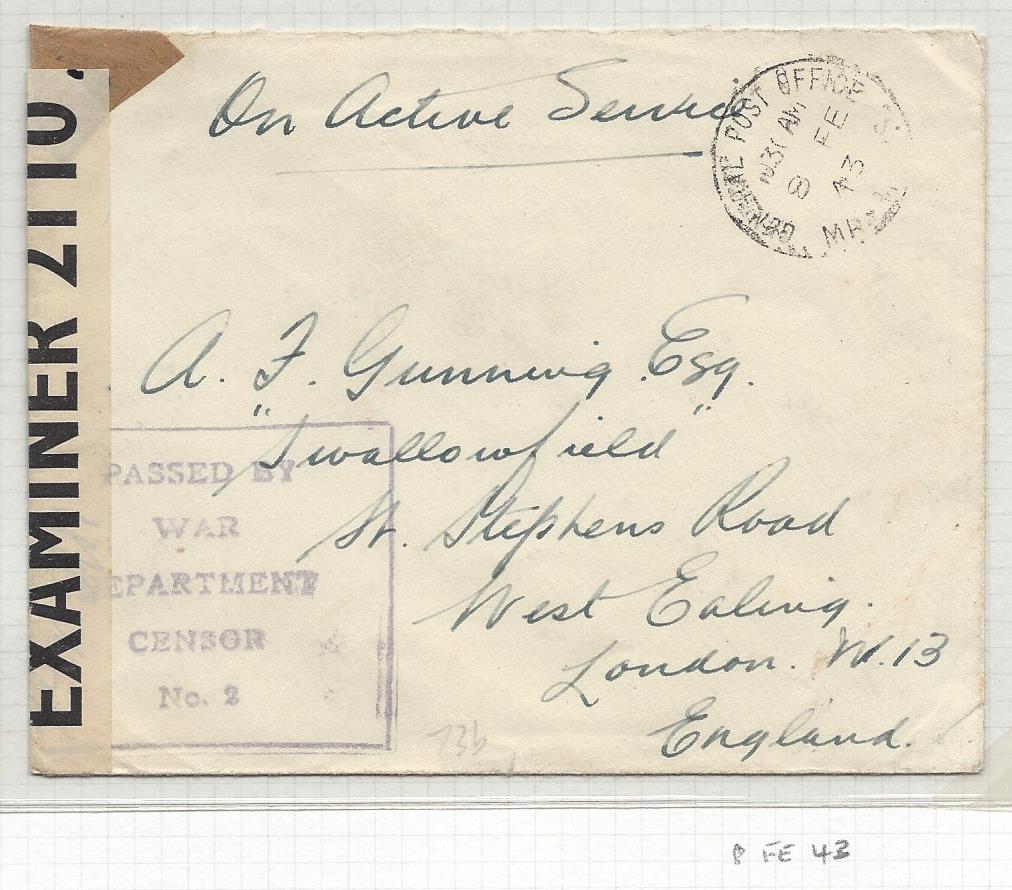 On Active Service
POST OFFICE
8 FE
43
EXAMINER 2110.
A. F. Gunning Esq.
"Swallowfield"
St. Stephens Road
West Ealing.
London. W.13
England.
PASSED BY
WAR
EPARTMENT
CENSOR
No. 2
23b
8 FE 43